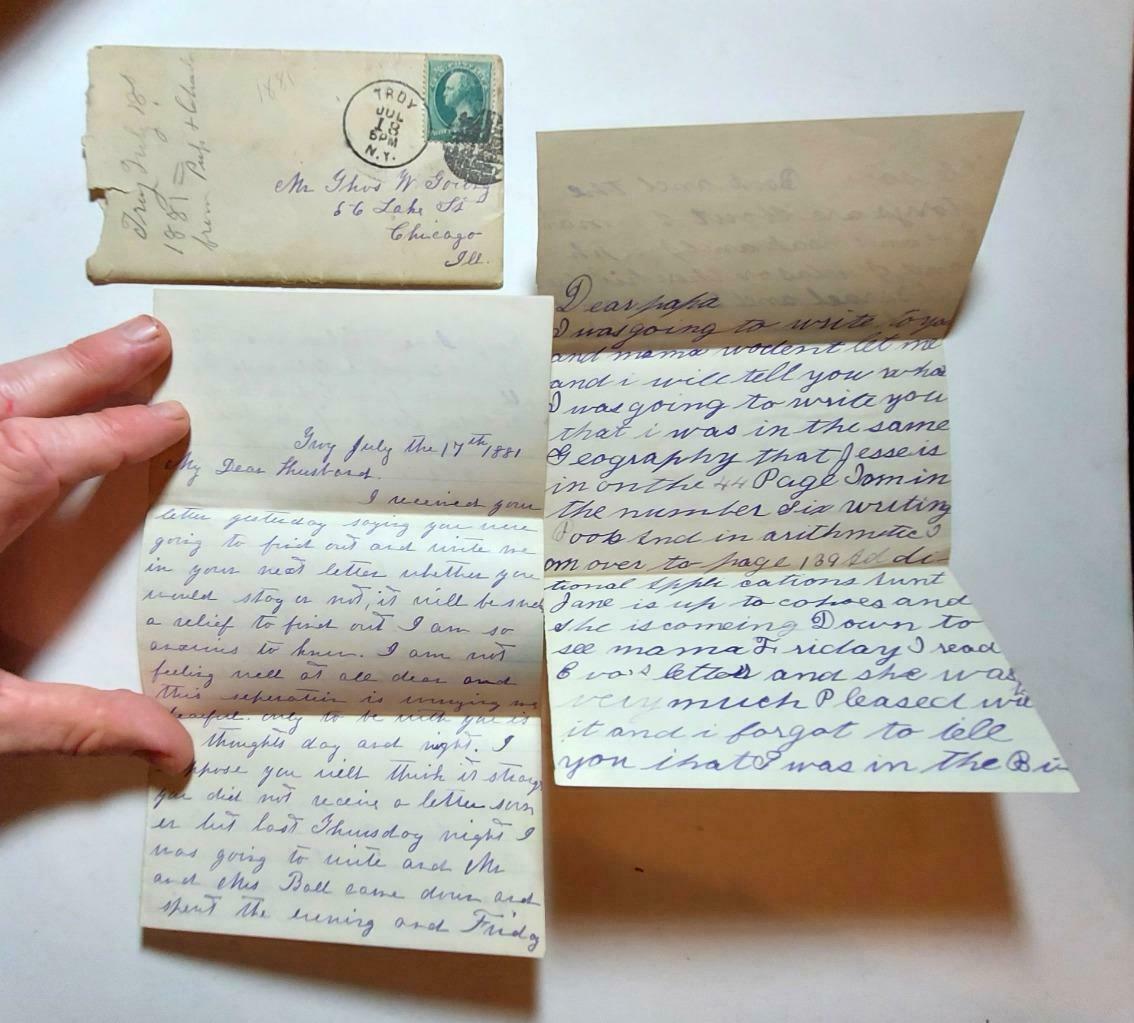 Troy July 18
1881
from Pup + Charlie
1881
TROY
JUL
18
6PM
N.Y.
Mr Thos W
56 Lake St
Chicago
Ill.
Troy July the 17th 1881
My Dear Husband.
I received your
letter yesterday saying you were
going to find out and write me
in your next letter whether you
would stay or not, it will be such
a relief to find out I am so
anxious to know. I am not
feeling well at all dear and
this seperation is
only to be with you is
thoughts day and night. I
you will think it strange
you did not receive a letter soon
er but last Thursday night I
was going to write and Mr
and Mrs Ball came down and
spent the evening and Friday
Dear papa
I was going to write to you
and mama wodent let me
and i will tell you what
I was going to write you
that i was in the same
Geography that Jesse is
in on the 44 Page I am in
the number six writing
Book And in arithmetic I
am over to page 139 Addi
tional Appli cations Aunt
Jane is up to cohoes and
she is comeing Down to
see mama Friday I read
Evas letter and she was
very much Pleased with
it and i forgot to tell
you that I was in the